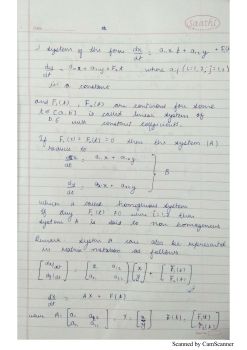 Saathi
System of the form dx/dt = a₁₁ x + a₁₂ y + F₁(t)
dy/dt = a₂₁x + a₂₂y + F₂(t) where aᵢⱼ (i=1,2, j=1,2)
is a constant
and F₁(t), F₂(t) are continuous for some
t ∈ [a, b] is called linear system of
D.E with constant coefficients.
If F₁(t) = F₂(t) = 0 then the system (A)
reduce to
dx/dt = a₁₁ x + a₁₂ y
B
dy/dt = a₂₁ x + a₂₂ y
which is called homogenous system
If any Fᵢ(t) ≠ 0 where i=1,2 then
system A is said to non homogenous
Remark System A can also be represented
in matrix notation as follows
[dx/dt dy/dt] = [a₁₁ a₁₂ a₂₁ a₂₂] [x y] + [F₁(t) F₂(t)]
dX/dt = AX + F(t)
where A = [a₁₁ a₁₂ a₂₁ a₂₂] X = [x y] F(t) = [F₁(t) F₂(t)]
Scanned by CamScanner